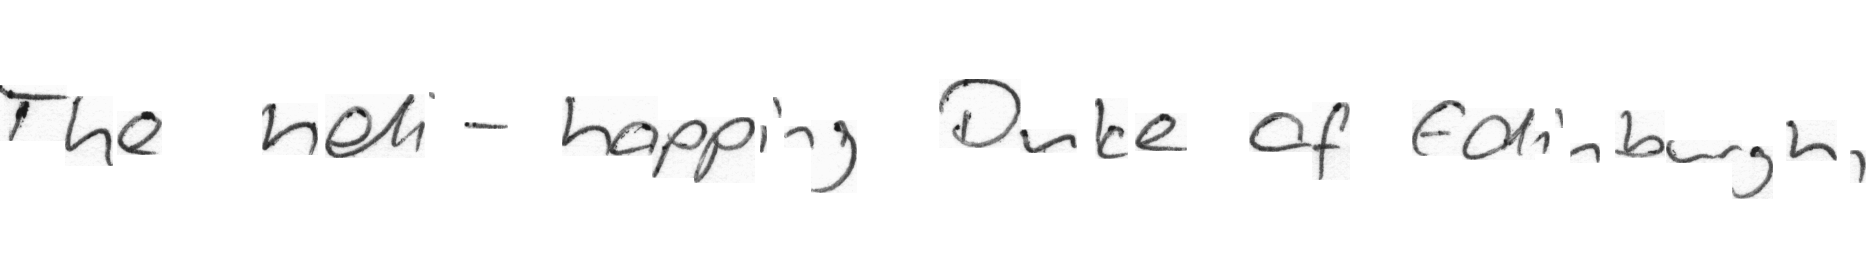 The heli - hopping Duke of Edinburgh,